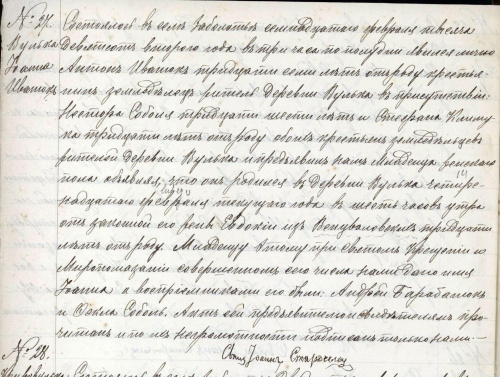 № 27. Состоялось въ селѣ Заболотьи семнадцатаго февраля тысяча
Вулька Девятисотъ втораго года въ три часа по полудни явился лично
Іоаннъ Антонъ Иванюкъ тридцати семи лѣтъ отъ роду крестья-
Иванюкъ нинъ земледѣлецъ житель деревни Вулька въ присутствіи
Нестора Соболя тридцати шести лѣтъ и Стефана
тридцати лѣтъ отъ роду обоихъ крестьянъ земледѣльцевъ
жителей деревни Вулька и предъявилъ намъ младенца женскаго
пола объявляя, что онъ родился въ деревни Вулька четыре-
надцатаго февраля текущаго года въ шесть часовъ утра
отъ законной его жены Евдокіи изъ тридцати
лѣтъ отъ роду. Младенцу этому при Святомъ Крещеніи и
Миропомазаніи совершенномъ сего числа нами дано имя
Іоанна а воспріемниками его были: Андрей Барабашъ
и Ѳекла Соболь. Актъ сей предъявителю и свидѣтелямъ про-
читанъ и по ихъ неграмотности подписанъ только нами:—
№ 28. Свящ. Іоаннъ
Состоялось въ селѣ